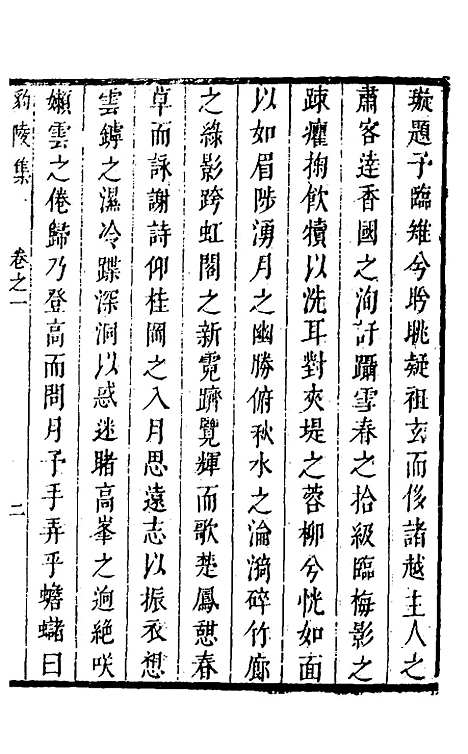 璇題予臨雉兮盻眺疑祖玄而侈諸越主人之
肅客逹香國之洵訏躡雪春之拾級臨梅影之
踈癯掬飲犢以洗耳對夾堤之蓉柳兮恍如面
以如眉陟湧月之幽勝俯秋水之淪漪碎竹廊
之綠影跨虹閣之新霓躋覽輝而歌楚鳳憇春
草而詠謝詩仰桂岡之入月思遠志以振衣想
雲鏬之濕冷蹀深洞以惑迷睹高峯之逈絶咲
嬾雲之倦歸乃登高而問月予手弄乎蟾蠩曰
豹陵集
卷之一
二